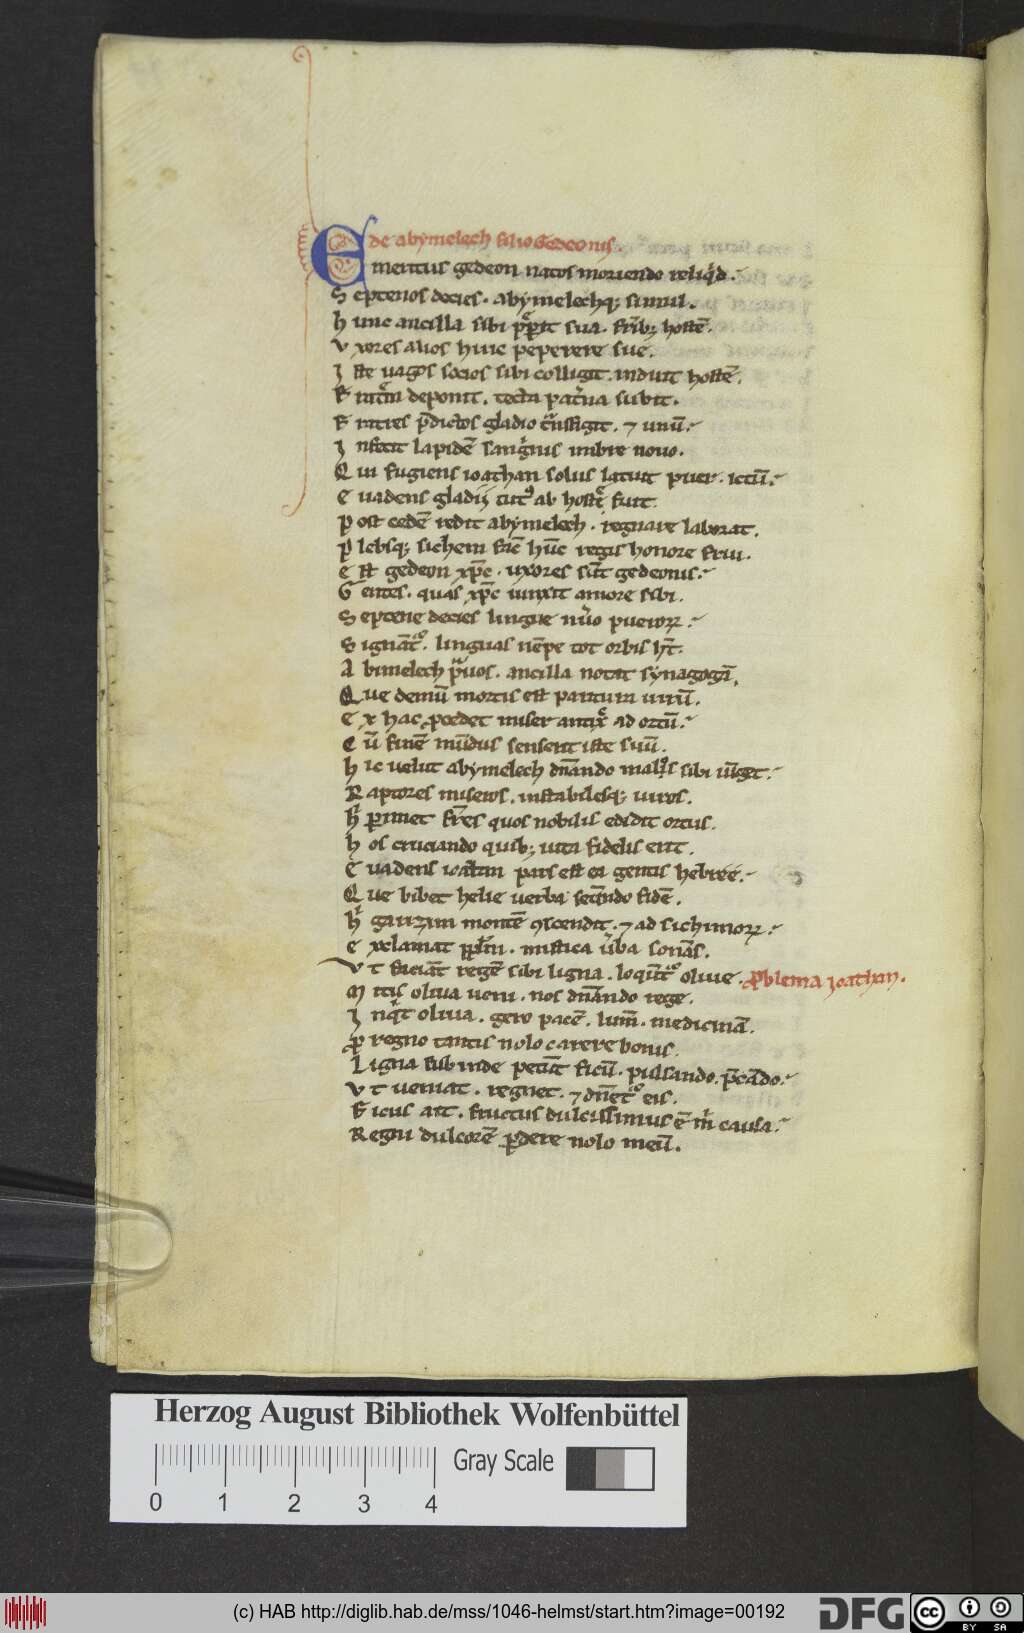 de abymelech filio Gedeonis
Emeritus gedeon natos moriendo reliqͥd.
Septenos decies. abymelechq; simul.
hunc ancilla sibi sua. hostē.
Vxores alios huic peperere sue.
Iste uagos socios sibi colligit. induit hostē.
deponit. tecta pat̉na subit.
Fratres p̄dictos gladio ⁊ unū.
Infecit lapidē sangͥnis imbre nouo.
Qui fugiens ioathan solus latuit puer. ictū.
Euadens gladij tutꝰ ab hoste fuit.
Post cedē redit abymelech. regnare laborat.
Plebsq; sichem hūc regis honore frui.
Est gedeon xp̄c. uxores sūt gedeonis.
Gentes. quas xp̄c iunxit amore sibi.
Septene decies lingue nūo pueroꝝ.
Signāt̉. linguas nēpe tot orbis hт̄.
Abimelech pͣuos. ancilla notat synagogā.
Que demū mortis est paritura uirū.
Ex hac ꝓcedet miser antix̄ ad ortū.
Cū finē mūdus senserit iste suū.
hic uelut abymelech dn̄ando malos sibi iūget.
Raptores miseros. instabilesq; uiros.
hͥ ꝑimet fr̄es quos nobilis edidit ortus.
hos cruciando quibꝫ uita fidelis erit.
Euadens ioathan pars est ea gentis hebree.
Que bibet helie uerba secūndo fidē.
hͥ garizim montē ꝯscendit. ⁊ ad sichimoꝝ.
Exclamat pp̄lm. mistica u̓ba sonās.
Vt faciāt regē sibi ligna. loqūt̉ oliue. Problema ioathan.
Mitis oliua ueni. nos dn̄ando rege.
Inqͥt oliua. gero pacē. lum̄. medicinā.
Pro regno tantis nolo carere bonis.
Ligna subinde petūt ficū. pulsando. p̄cādo.
Vt ueniat. regnet. ⁊ dn̄et̉ eis.
Ficus ait. fructus dulcissimus ē m̓ causa.
Regni dulcorē ꝑdere nolo meū.
Herzog August Bibliothek Wolfenbüttel
0 1 2 3 4
Gray Scale
(c) HAB http://diglib.hab.de/mss/1046-helmst/start.htm?image=00192
DFG
cc BY SA